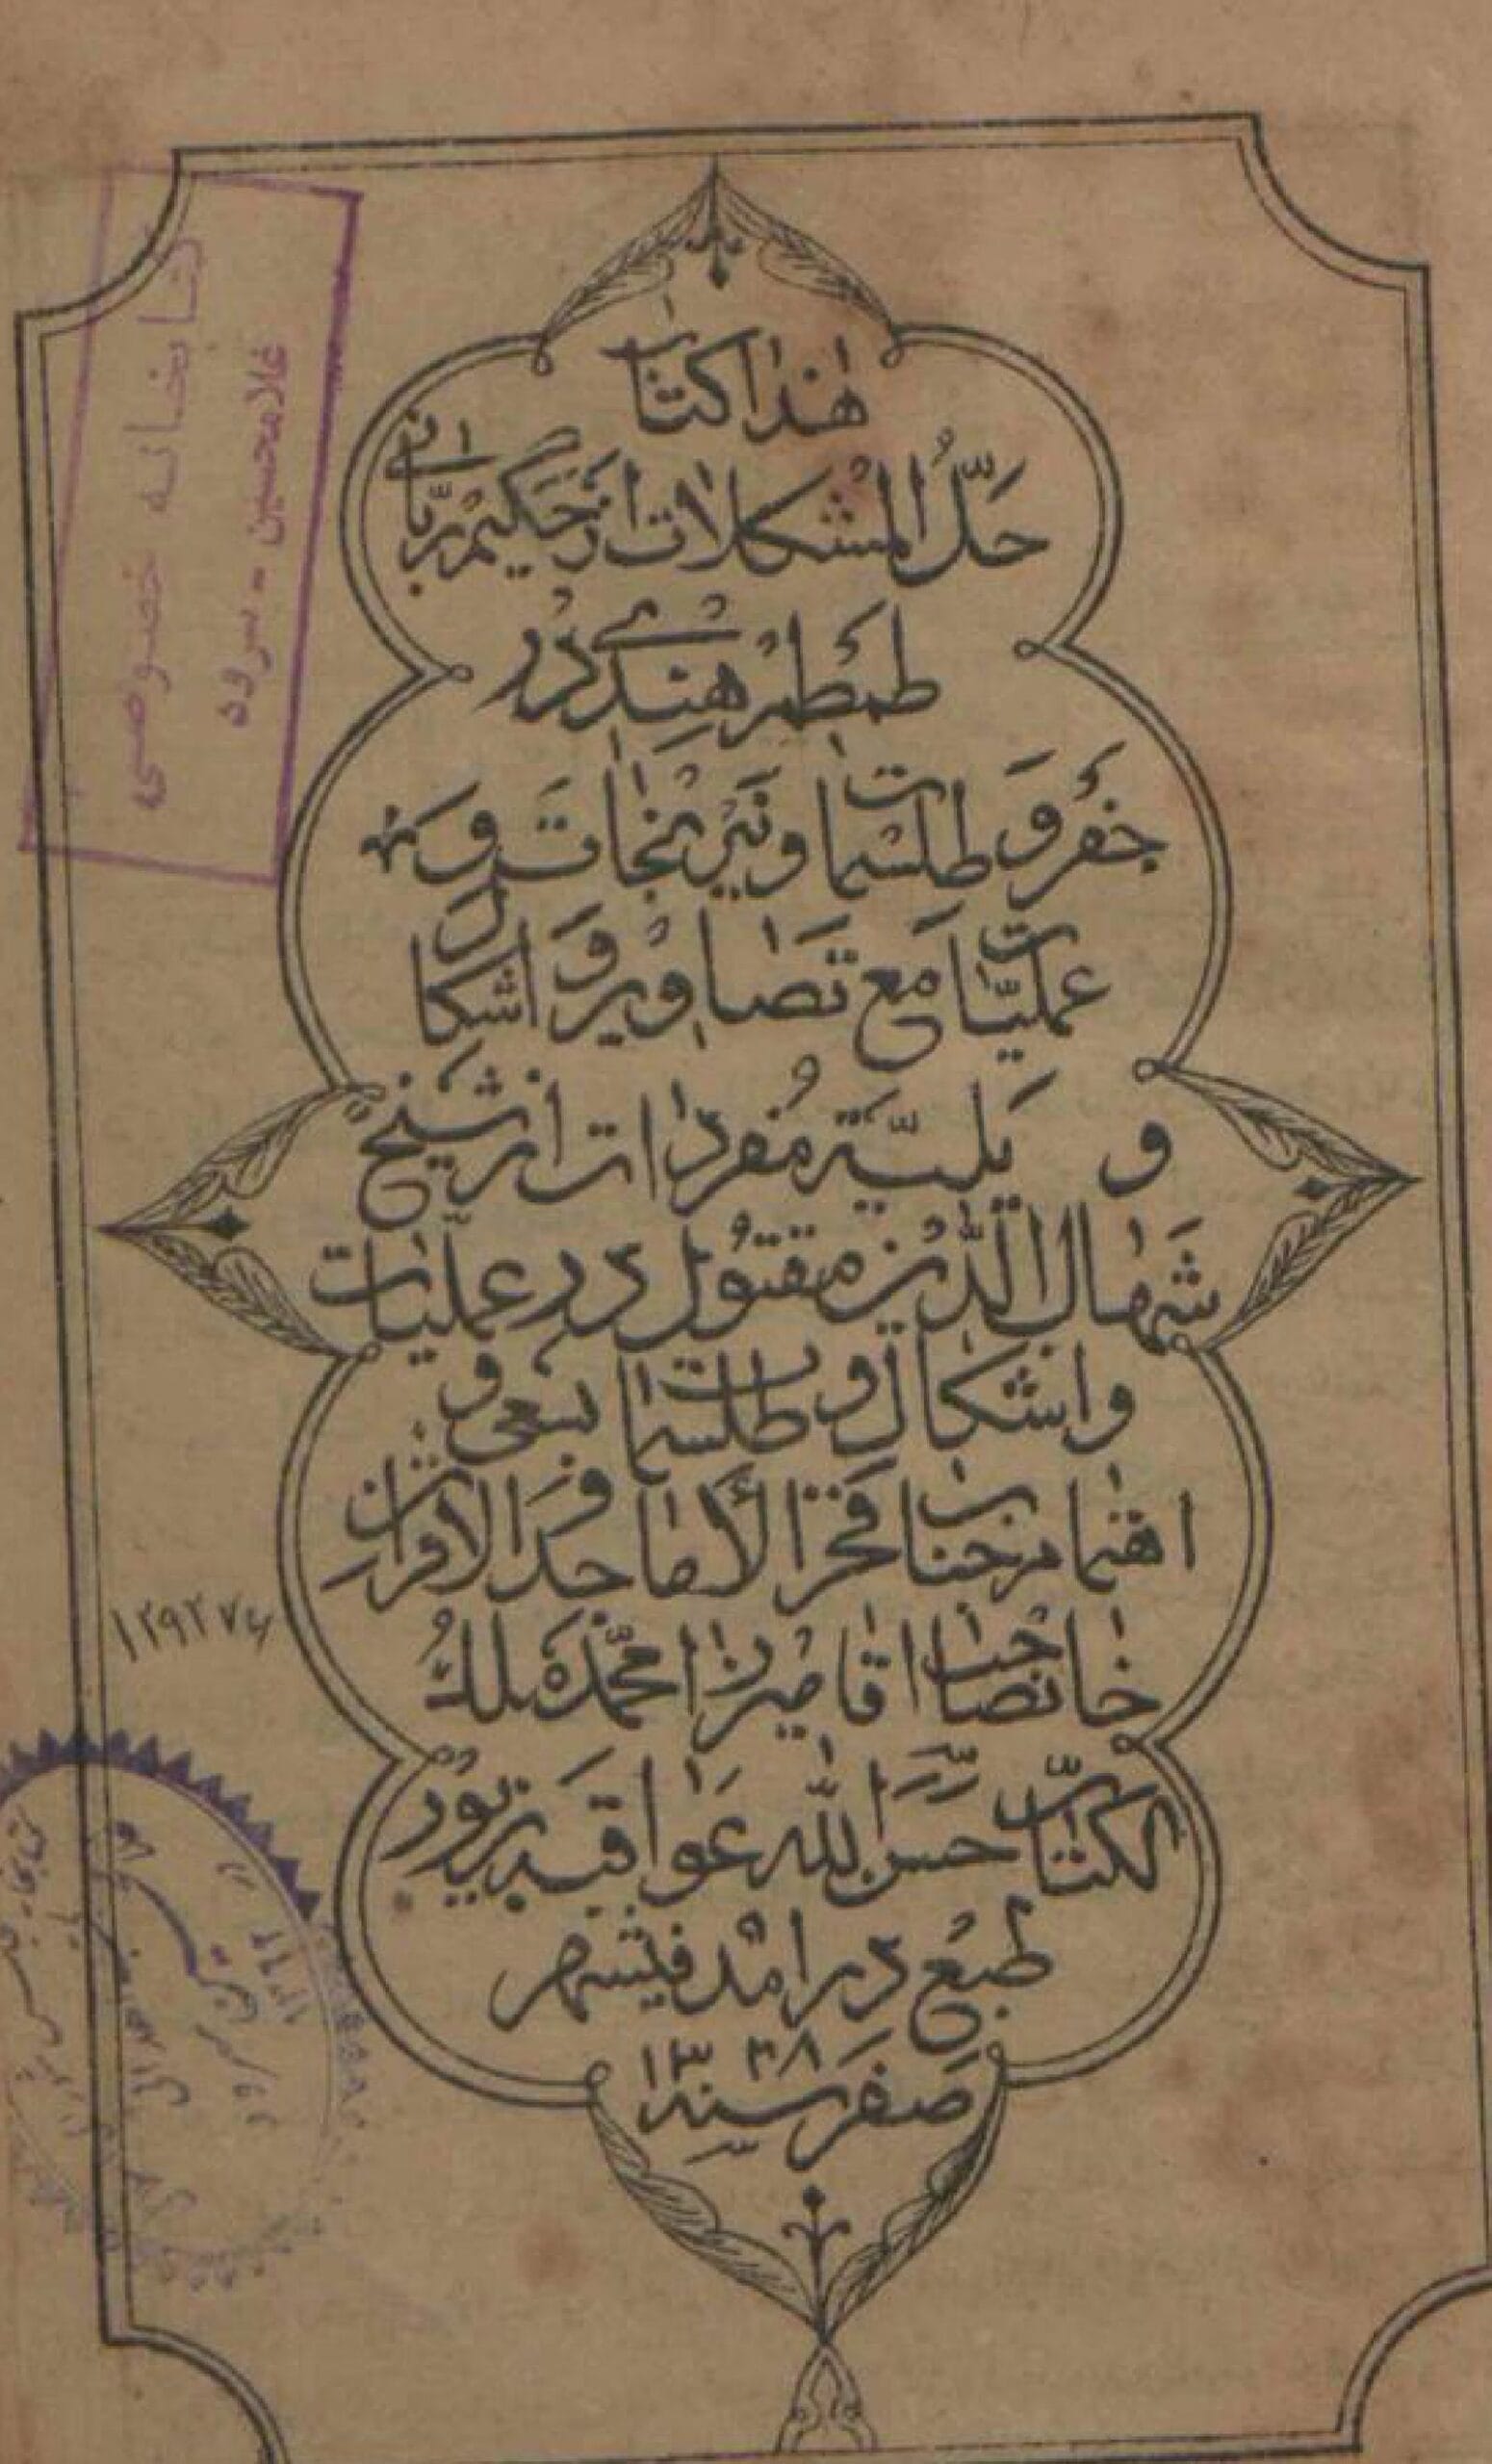 هٰذا کتاب
حَلّ المُشکلات از حَکیم ربّانی
طمطم هندی در
جفر و طلسمات و نیرنجات و
عملیّات مع تصاویر و اشکال
و یلیه مفردات از شیخ
شهاب الدّین مقتول در عملیّات
و اشکال و طلسمات بسعی و
اهتمام جناب فخر الأماجد و الاقران
خانصاحب اقا میرزا محمّد ملك
الکتّاب حسن الله عواقبه بزیور
طبع در امد فی شهر
صفر سنه ۱۳۳۸
کتابخانه خصوصی
غلامحسین - سرود
۱۲۹۲۷۶